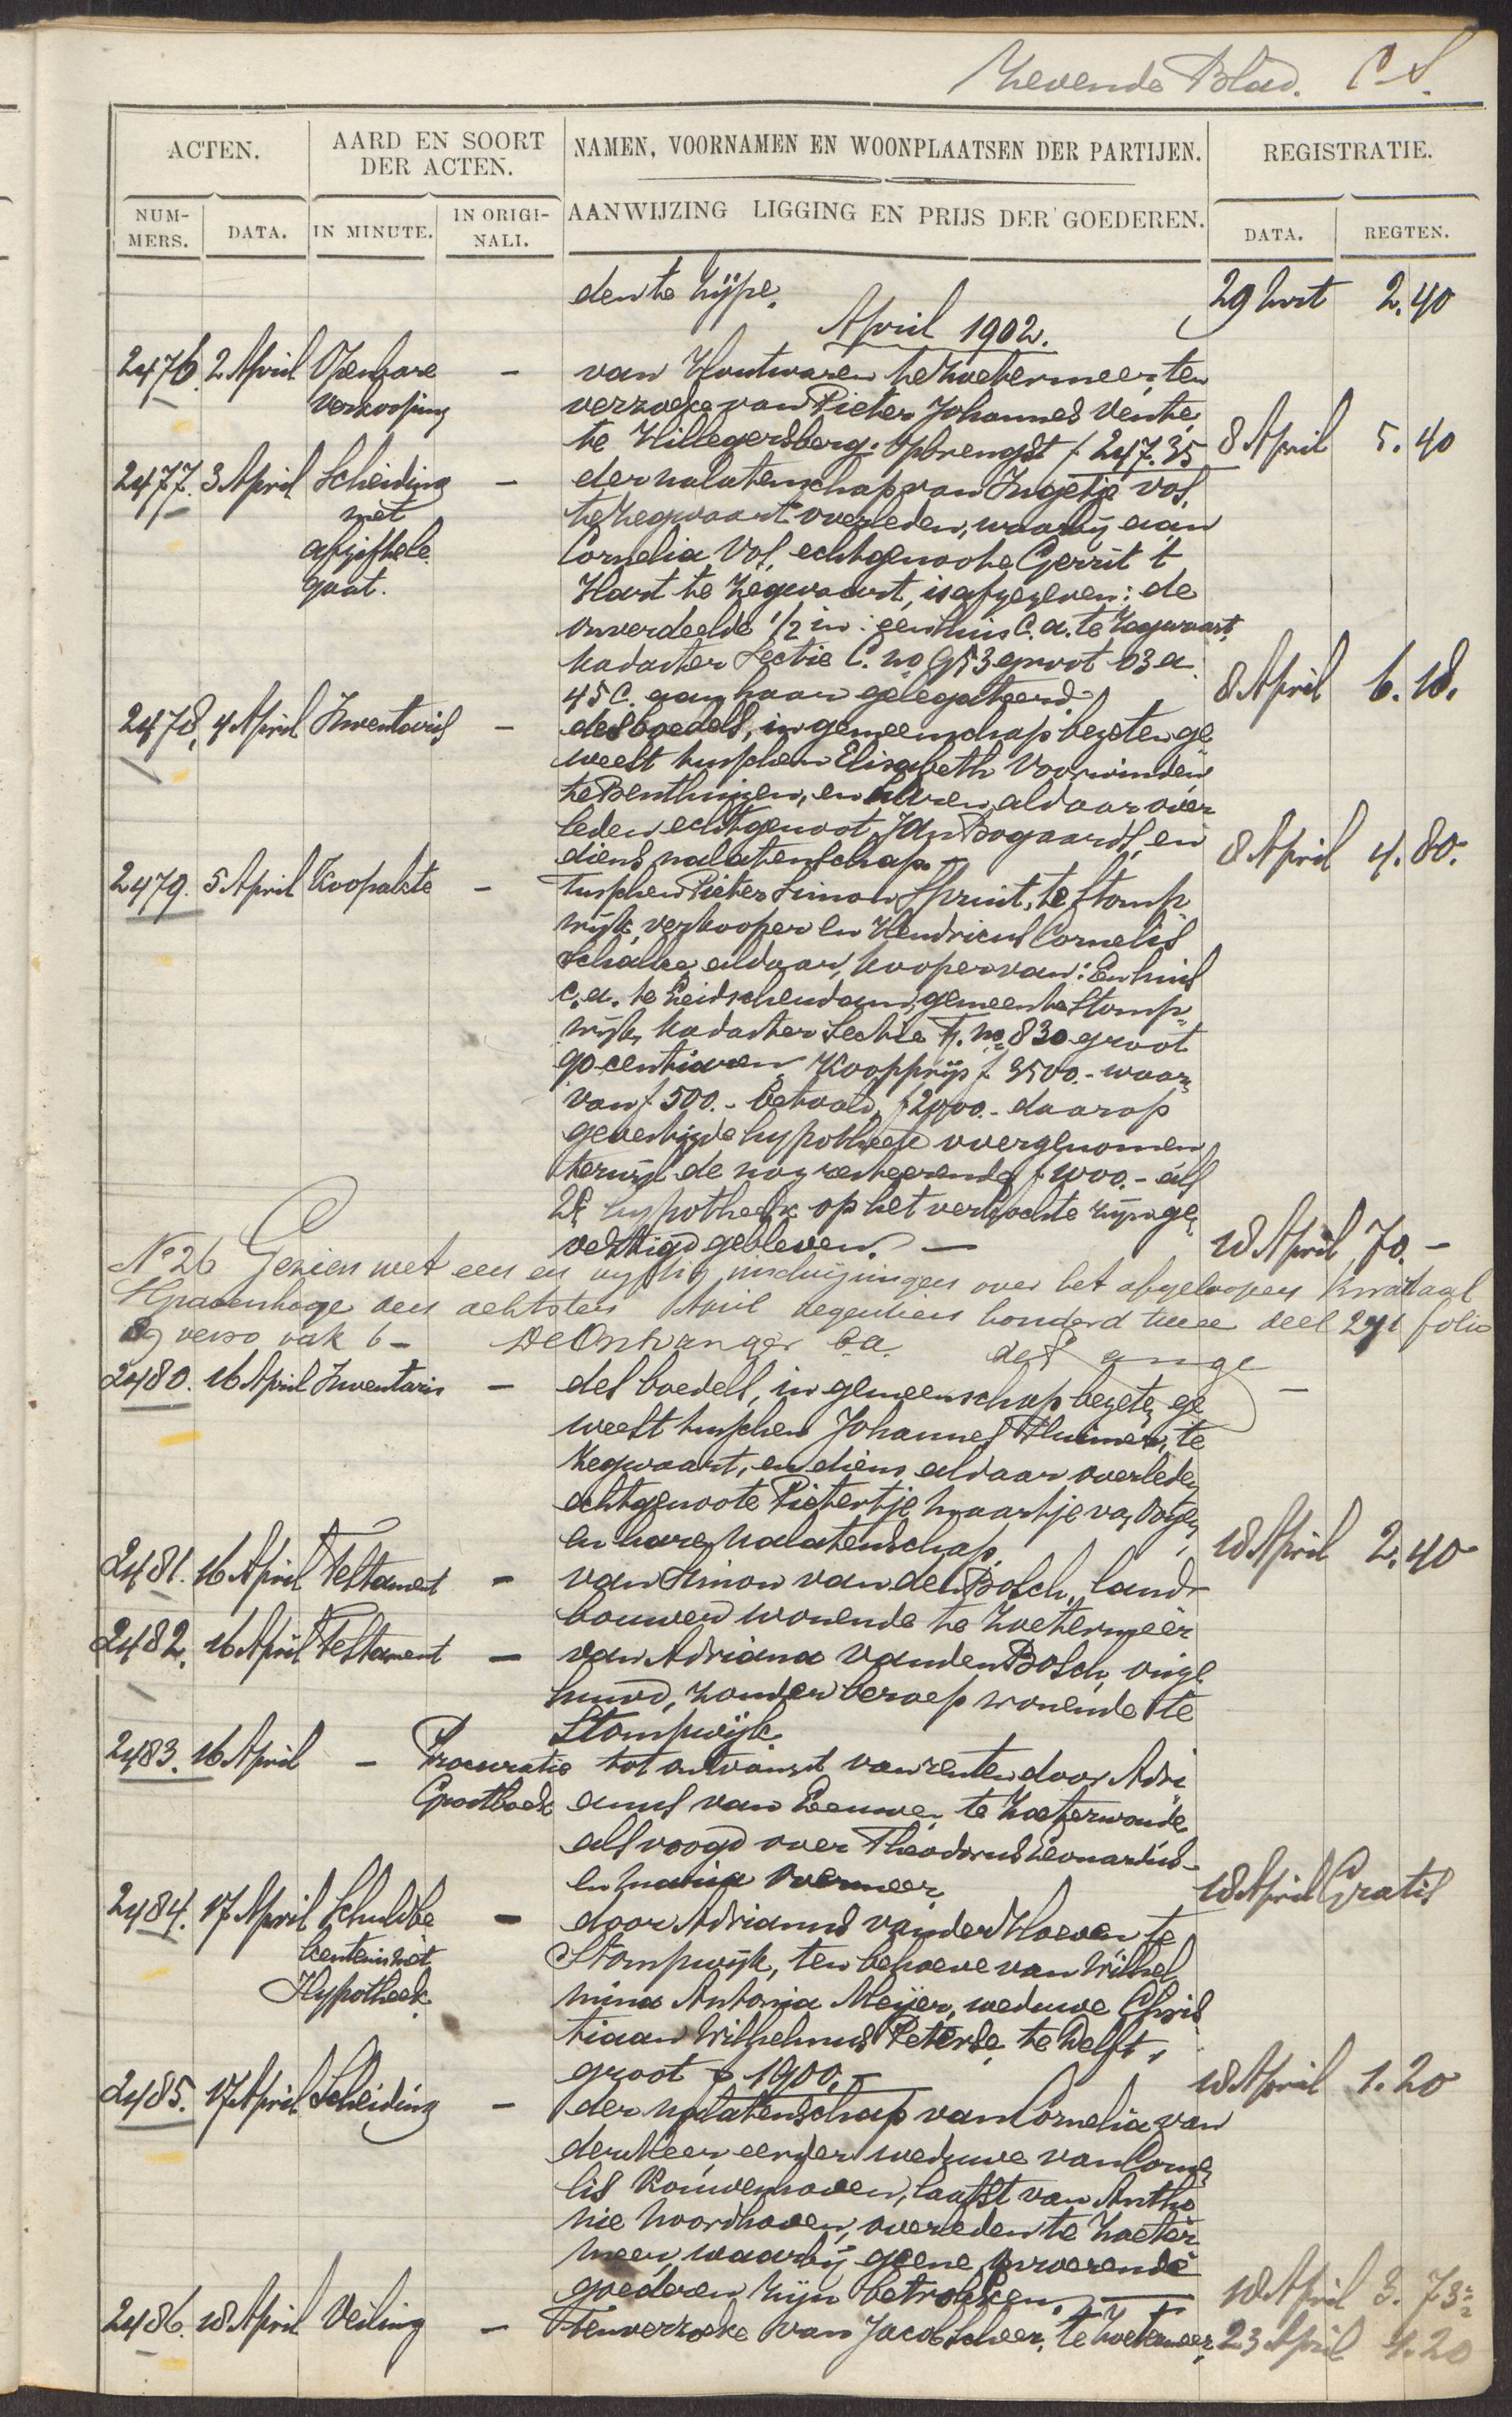 Zevende Blad. C S.
ACTEN.
AARD EN SOORT
DER ACTEN.
NAMEN, VOORNAMEN EN WOONPLAATSEN DER PARTIJEN.
REGISTRATIE.
NUM-
MERS.
DATA.
IN MINUTE.
IN ORIGI-
NALI.
AANWIJZING LIGGING EN PRIJS DER GOEDEREN.
DATA.
REGTEN.
den te Zijpe. 29 Mrt 2.40
April 1902.
2476. 2 April Openbare - van Houtwaren te Zoetermeer, ten
verkooping verzoeke van Pieter Johannes
te Hillegersberg. Opbrengst f 247.35 8 April 5.40
2477. 3 April Scheiding - der nalatenschap van Ingetje Vos,
met te Zegwaart overleden, waarbij aan
afgifte le Cornelia Vos, echtgenoote Gerrit 't
gaat. Hart te Zegwaart, is afgegeven: de
onverdeelde 1/2 in: een huis c.a. te Zegwaart,
kadaster Sectie C. no 953 groot 03 a.
45 c. aan haar gelegateerd. 8 April 6.18.
2478. 4 April Inventaris - des boedels, in gemeenschap bezeten ge
weest tusschen Elisabeth Voorwinden
te Benthuizen, en haren aldaar over
leden echtgenoot Jan Bogaardt, en
diens nalatenschap. 8 April 4.80.
2479. 5 April Koopakte - Tusschen Pieter Simon Spruit, te Stomp
wijk, verkooper en Hendricus Cornelis
Schalke aldaar, kooper van: Een huis
c.a. te Leidschendam, gemeente Stomp-
wijk, kadaster Sectie no 830 groot
90 centiaren Koopprijs f 3500.- waar
van f 500.- betaald, f 2000.- daarop
gevestigde hypotheek overgenomen
terwijl de nog resteerende f 1000.- als
2e hypotheek op het verkochte zijn ge
vestigd gebleven. - 18 April 70.-
No 26 Gezien met een en vijftig inschrijvingen over het afgeloopen kwartaal
'sGravenhage den achtsten April negentien honderd twee deel 241 folio
89 verso vak 6 - De Ontvanger
2480. 16 April Inventaris - des boedels, in gemeenschap bezeten ge -
weest tusschen Johannes te
Zegwaart, en diens aldaar overleden
echtgenoote Pietertje Maartje van
en hare nalatenschap. 18 April 2.40
2481. 16 April Testament - van Simon van den Bosch, land-
bouwer wonende te Zoetermeer
2482. 16 April Testament - van Adriana van den Bosch, onge
huwd, zonder beroep wonende te
Stompwijk.
2483. 16 April - Procuratie tot ontvangst van renten door Adri
Grootboek anus van Leeuwen te Zoeterwoude
als voogd over Theodorus Leonardus
en Maria Overmeer 18 April Gratis
2484. 17 April Schuldbe - door Adrianus van der Hoeven te
kentenis met Stompwijk, ten behoeve van Wilhel
Hypotheek mina Antonia Meijer, weduwe Chris
tiaan Wilhelmus Peterse te Delft,
groot f 1900.- 18 April 1.20
2485. 17 April Scheiding - der nalatenschap van Cornelia van
der Meer eerder weduwe van Corne
lis Kouwenhoven, laatst van Antho
nie Noordhoven, overleden te Zoeter
meer, waarbij geene onroerende
goederen zijn betrokken. 18 April 3.73
2486. 18 April Veiling - Ten verzoeke van Jacob Scheer, te Zoetermeer 23 April 1.20